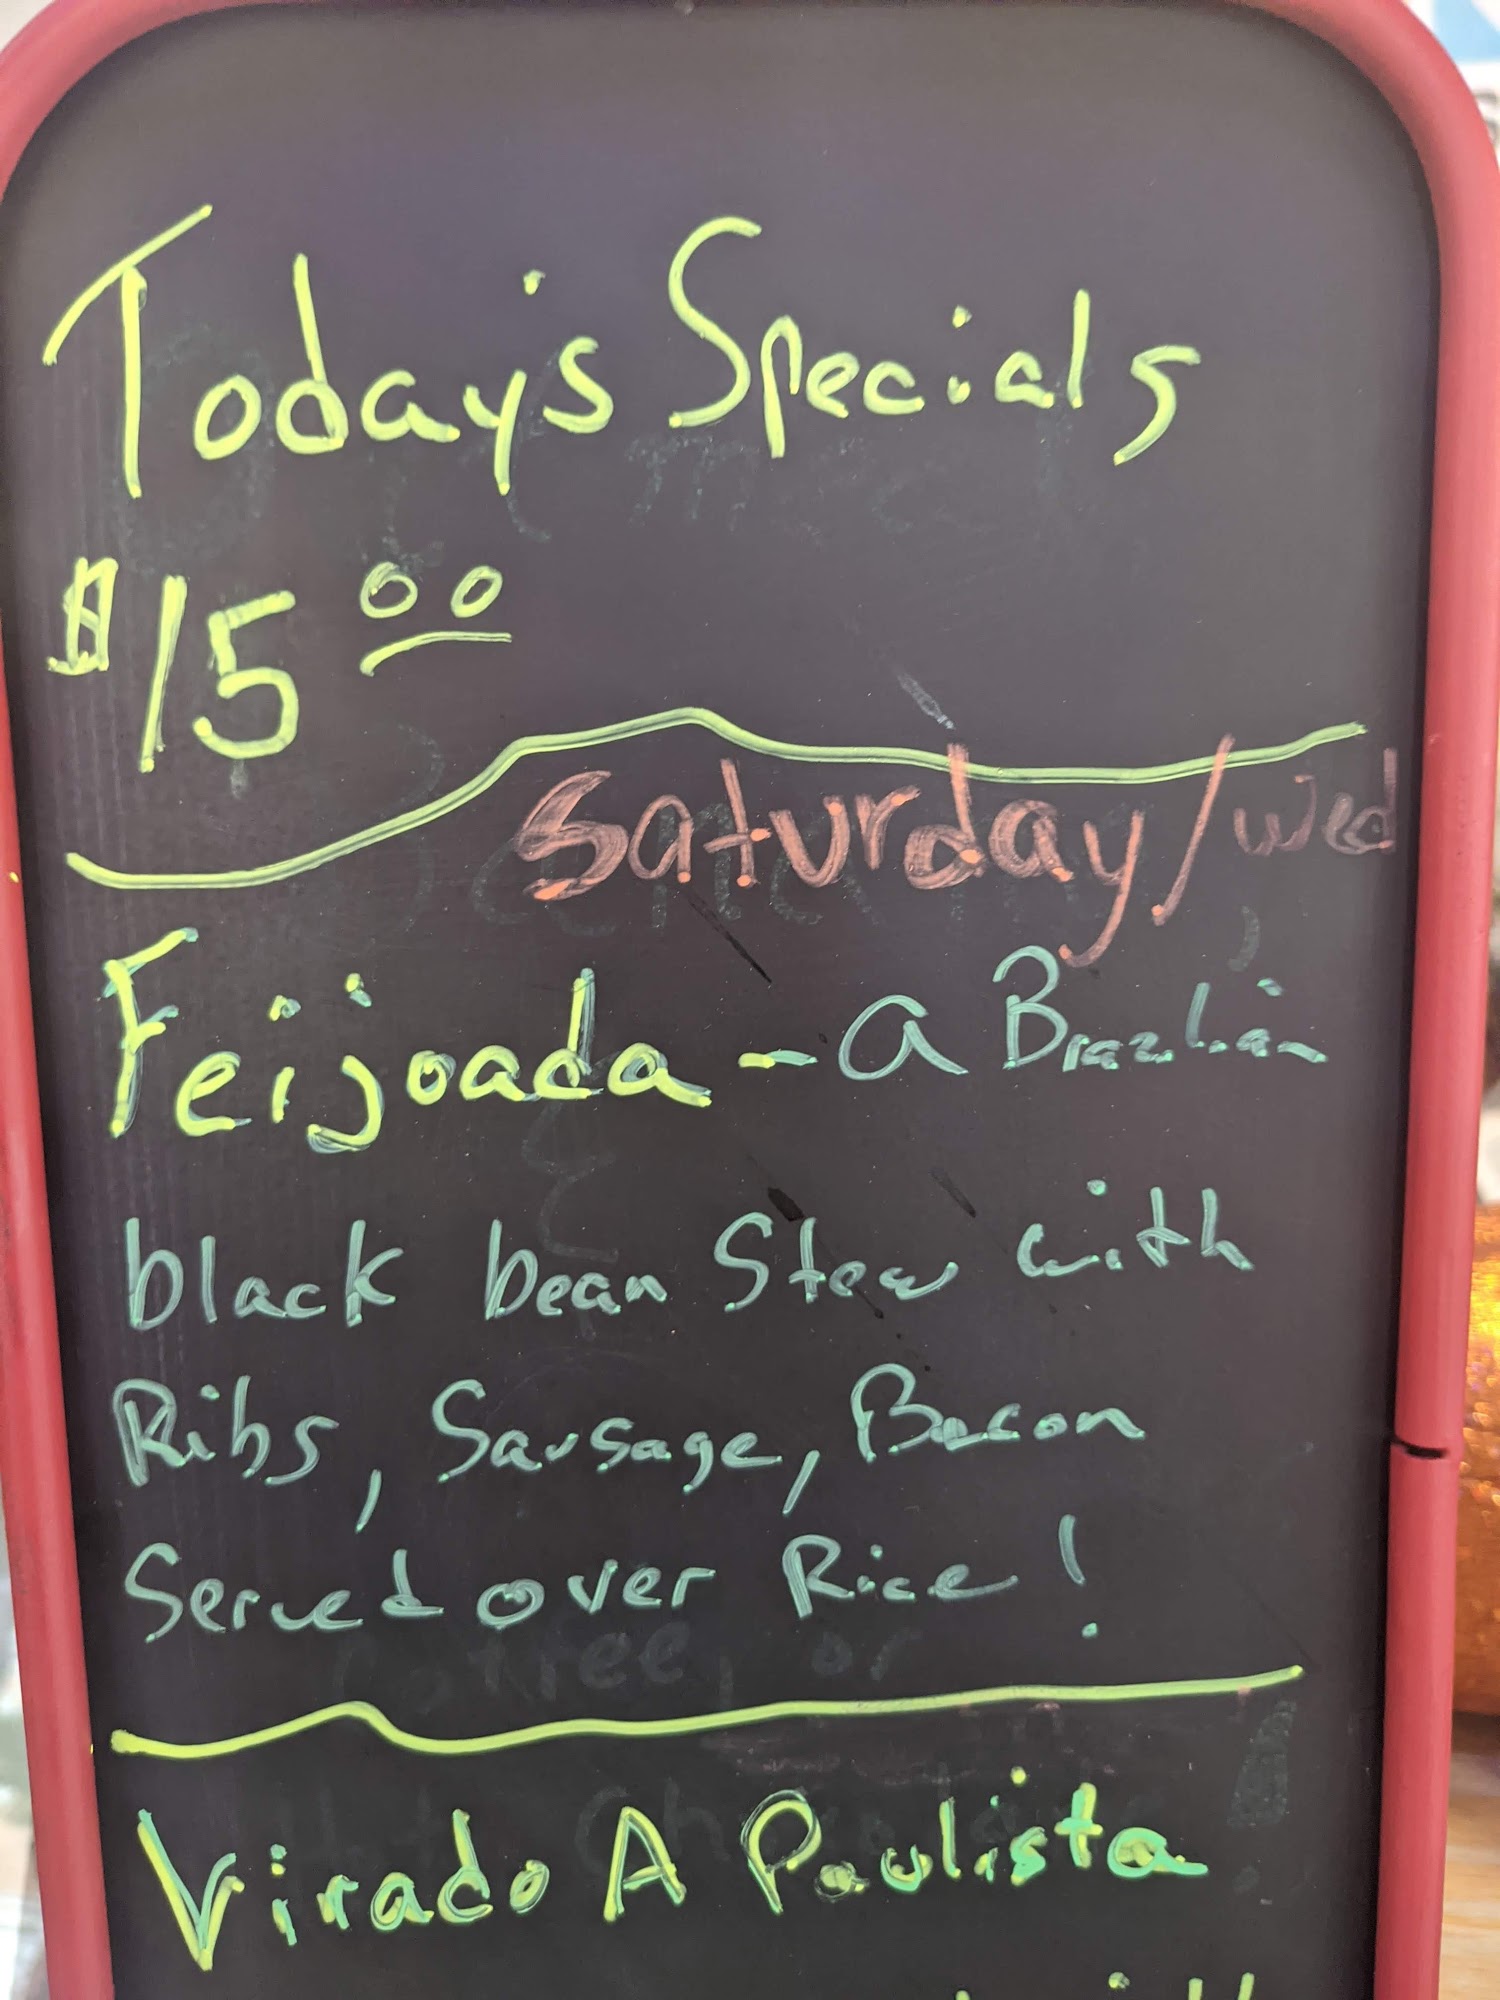 Today's Specials
$15.00
Saturday/Wed
Feijoada - a Brazilian
black bean Stew with
Ribs, Sausage, Bacon
Served over Rice!
Virado A Paulista